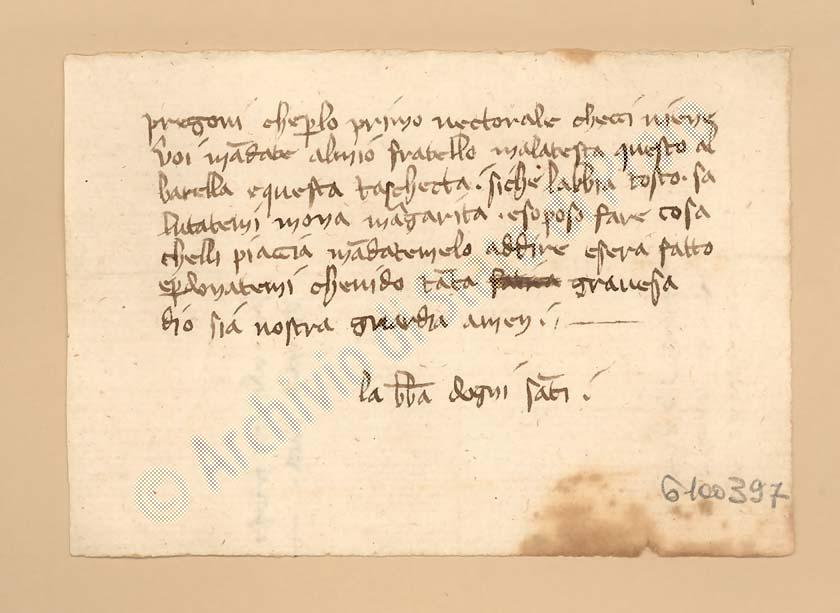 pregovi cheplo primo vectorale checci viene
voi mādate almio fratello malatesta questo al
barella equesta taschecta . siche labbia tosto . sa
lutatemi mona margarita . esoposo fare cosa
chelli piaccia mādatemelo addire esera fatto
epdonatemi chevido tāta gravesa
dio sia nostra guardia amen .
la bb̄a dogni sāti .
6100397
© Archivio di Stato